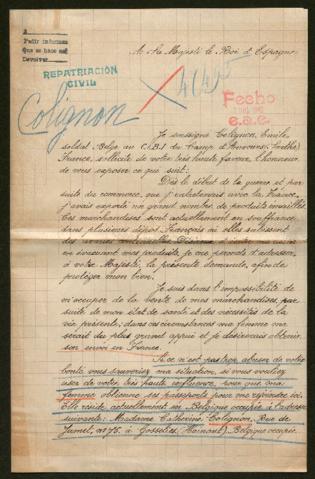 Pedir informes
Que se hace así
Devolver
REPATRIACIÓN
CIVIL
Colignon
Fecho
e.a.e.
A Sa Majesté le Roi d'Espagne
Je soussigné Colignon, Emile,
soldat Belge au C.I.B.I. du Camp d'Auvours, Sarthe,
France, sollicite de votre très haute faveur l'honneur
de vous exposer ce que suit:
Dès le début de la guerre et par
suite du commerce, que j'entretenais avec la France,
j'avais exporté un grand nombre de produits émaillés.
Ces marchandises sont actuellement en souffrance
dans plusieurs dépôts français où elles subissent
des avaries continuelles. Désireux
en écoulant mes produits, je me permets d'adresser,
à votre Majesté, la présente demande, afin de
protéger mon bien.
Je suis dans l'impossibilité de
m'occuper de la vente de mes marchandises, par
suite de mon état de santé et des nécessités de la
vie présente; dans ces circonstances ma femme me
serait du plus grand appui et je désirerais obtenir
son envoi en France.
Si ce n'est pas trop abuser de votre
bonté, vous ma situation, si vous vouliez
user de votre très haute influence, pour que ma
femme obtienne ses passeports pour me rejoindre ici.
Elle réside actuellement en Belgique occupée à l'adresse
suivante: Madame Catherine Colignon, Rue de
Jumet, n° 75, à Gosselies (Hainaut) Belgique occupée.